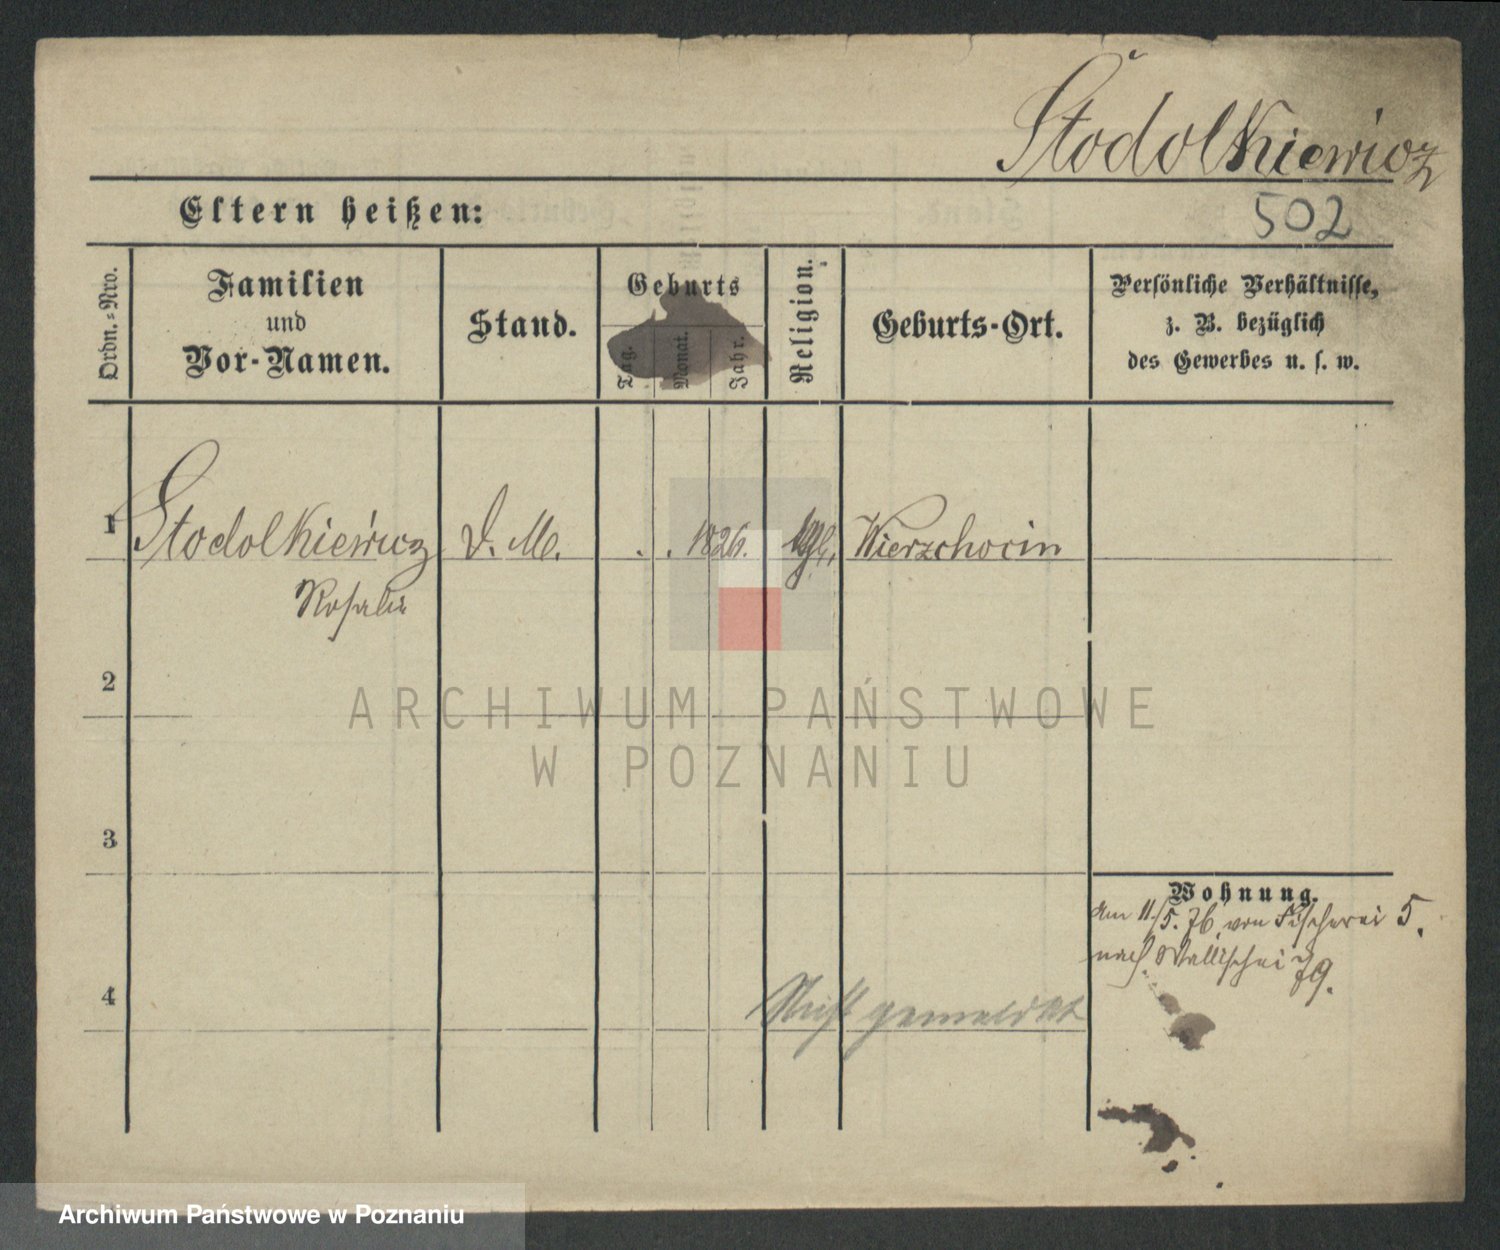 Stodolkiewicz
Eltern heißen:
502
Ordn.-Nro.
Familien
und
Vor-Namen.
Stand.
Geburts
Tag.
Monat.
Jahr.
Religion.
Geburts-Ort.
Persönliche Verhältnisse,
z. B. bezüglich
des Gewerbes u. s. w.
1
Stodolkiewicz
D. M.
. . 1826.
Wierzchocin
Rosalie
2
ARCHIWUM PAŃSTWOWE
W POZNANIU
3
Wohnung.
Am 11/5. 76. von Fischerei 5.
nach Wallischei 79.
4
Nicht gemeldet
Archiwum Państwowe w Poznaniu